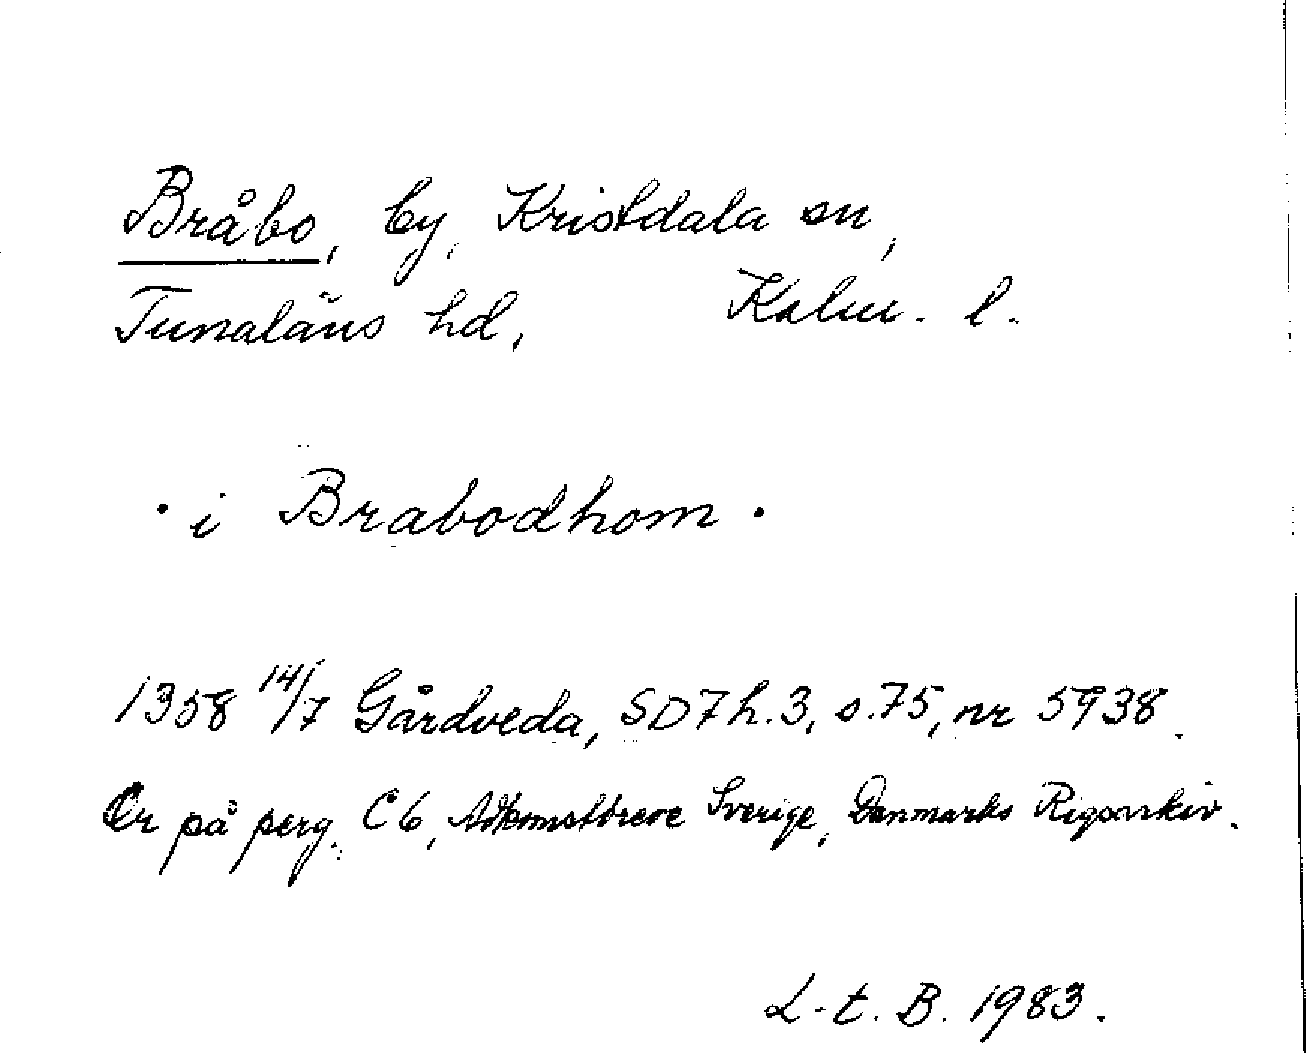 Bråbo, by, Kristdala sn,
Tunaläns hd, Kalm. l.
· i Brabodhom ·
1358 14/7 Gårdveda, SD7 h.3, s.75, nr 5938.
Or på perg. C6, Adkomstbreve Sverige, Danmarks Rigsarkiv.
L-t. B. 1983.